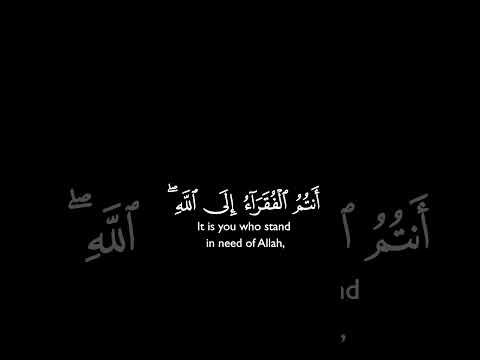 أَنتُمُ ٱلْفُقَرَآءُ إِلَى ٱللَّهِ ۖ
It is you who stand
in need of Allah,
ٱللَّهِ ۖ
أَنتُمُ ٱ
nd
,